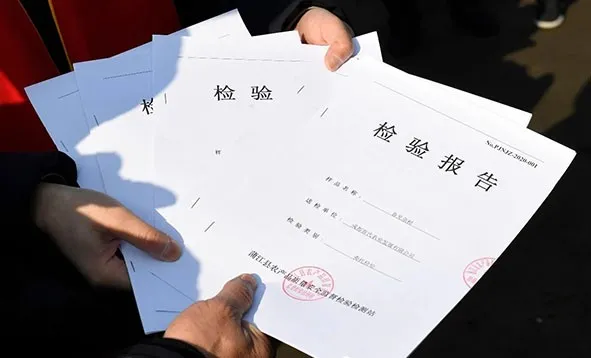 检验
检验
样
No.PJNJZ-2020-001
检验报告
样品名称:
送检单位:
检验类别:
蒲江县农产品质量安全监督检验检测站